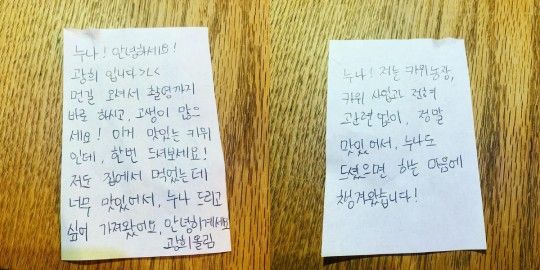 누나! 안녕하세요!
광희 입니다 >_<
먼길 오셔서 촬영까지
바로 하시고, 고생이 많으
세요! 이거 맛있는 키위
인데, 한번 드셔보세요!
저도 집에서 먹었는데
너무 맛있어서, 누나 드리고
싶어 가져왔어요, 안녕히계세요
광희올림
누나! 저는 키위농장,
키위 사업과 전혀
관련 없이, 정말
맛있어서, 누나도
드셨으면 하는 마음에
챙겨왔습니다!